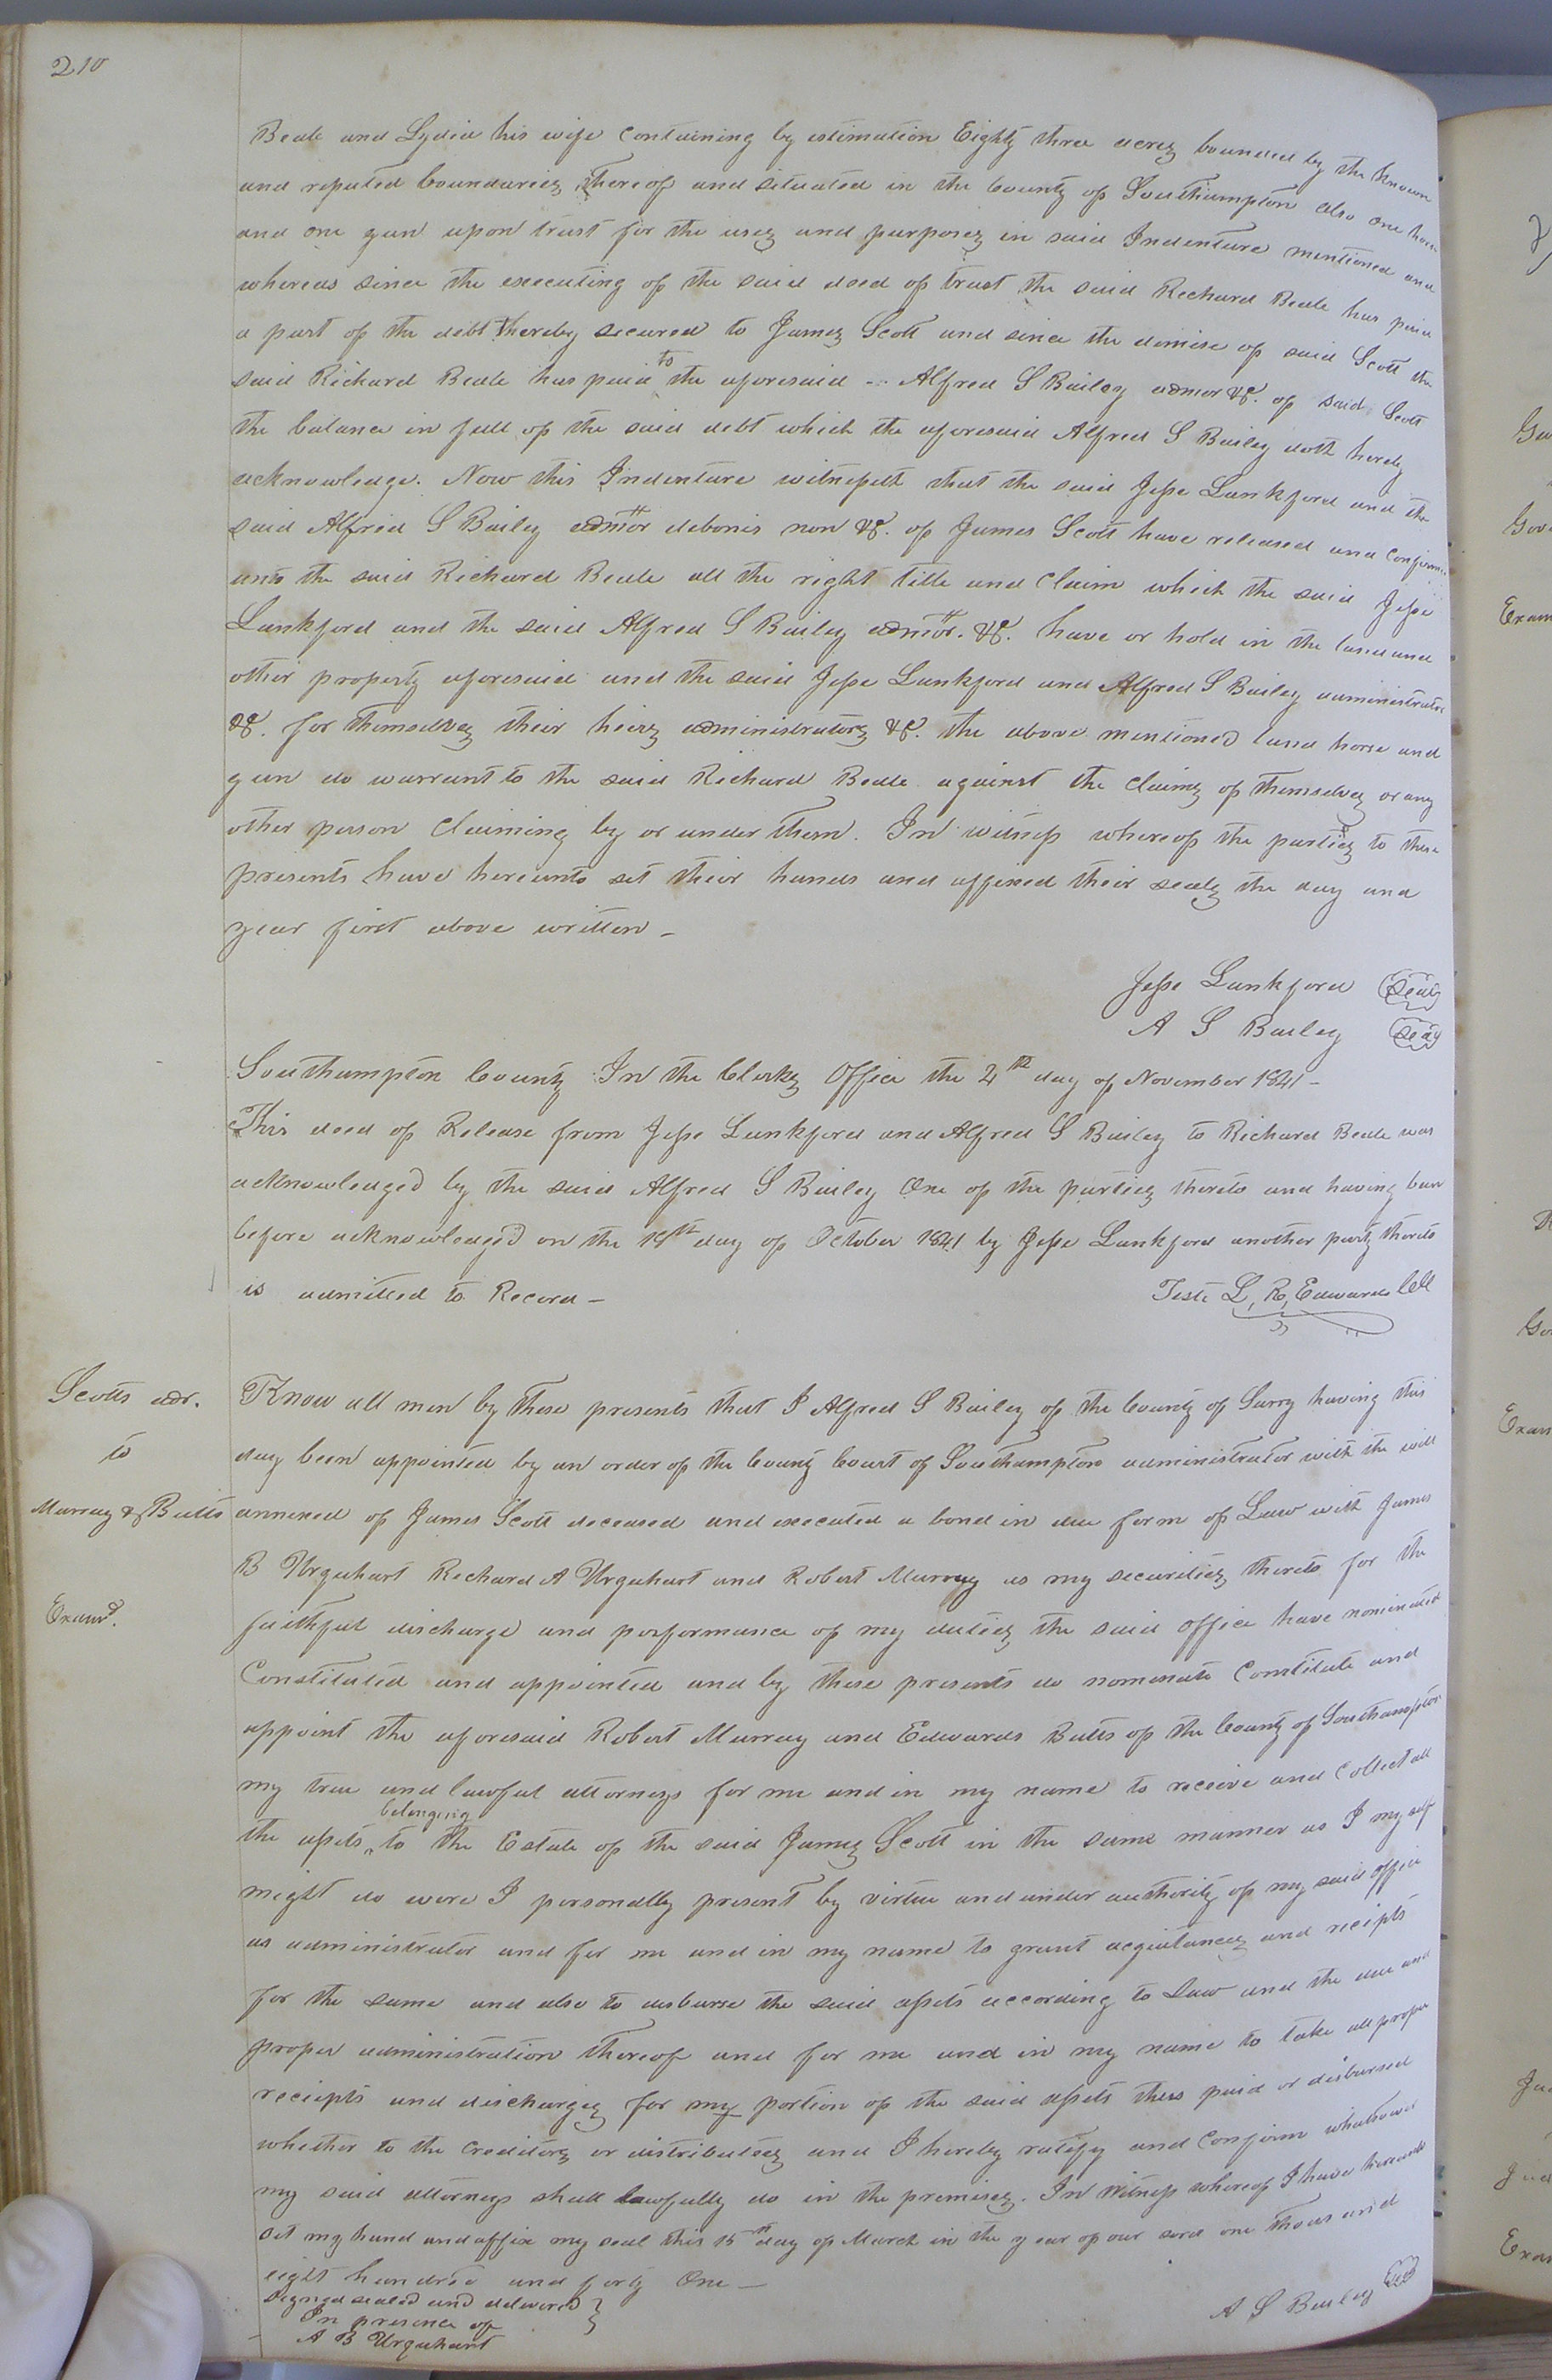 210
Beale and Lydia his wife Containing by estimation Eighty three acres bounded by the known
and reputed boundaries thereof and situated in the County of Southampton also one horse
and one gun upon trust for the uses and purposes in said Indenture mentioned and
whereas since the executing of the said deed of trust the said Richard Beale has paid
a part of the debt thereby secured to James Scott and since the demise of said Scott the
said Richard Beale has paid to the aforesaid Alfred S Bailey admor &c. of said Scott
the balance in full of the said debt which the aforesaid Alfred S Bailey doth hereby
acknowledge. Now this Indenture witnesseth that the said Jesse Lankford and the
said Alfred S Bailey admor debonis non &c. of James Scott have released and confirmed
unto the said Richard Beale all the right title and Claim which the said Jesse
Lankford and the said Alfred S Bailey admor. &c. have or hold in the land and
other property aforesaid and the said Jesse Lankford and Alfred S Bailey administrator
&c. for themselves their heirs administrators &c. the above mentioned land horse and
gun do warrant to the said Richard Beale against the Claims of themselves or any
other person Claiming by or under them. In witness whereof the parties to these
presents have hereunto set their hands and affixed their seals the day and
year first above written -
Jesse Lankford Seal
A S Bailey Seal
Southampton County In the Clerks Office the 4th day of November 1841 -
This deed of Release from Jesse Lankford and Alfred S Bailey to Richard Beale was
acknowledged by the said Alfred S Bailey One of the parties thereto and having been
before acknowledged on the 18th day of October 1841 by Jesse Lankford another party thereto
is admitted to Record -
Teste L, R, Edwards Clk
Scotts adr.
to
Murray & Butts
Examd.
Know all men by these presents that I Alfred S Bailey of the County of Surry having this
day been appointed by an order of the County Court of Southampton administrator with the will
annexed of James Scott deceased and executed a bond in due form of Law with James
B Urquhart Richard A Urquhart and Robert Murray as my securities thereto for the
faithful discharge and performance of my duties the said office have nominated
Constituted and appointed and by these presents do nominate Constitute and
appoint the aforesaid Robert Murray and Edwards Butts of the County of Southampton
my true and lawful attorneys for me and in my name to receive and Collect all
the assets belonging to the Estate of the said James Scott in the same manner as I my self
might do were I personally present by virtue and under authority of my said office
as administrator and for me and in my name to grant acquitances and recipts
for the same and also to disburse the said assets according to Law and the due and
proper administration thereof and for me and in my name to take all proper
receipts and discharges for my portion of the said assets thus paid or disbursed
whether to the Creditors or distributees and I hereby ratify and Confirm whatsoever
my said attorneys shall lawfully do in the premises. In Witness whereof I have hereunto
set my hand and affix my seal this 15th day of March in the year of our Lord one thousand
eight hundred and forty One -
A S Bailey Seal
Signed sealed and delivered
In presence of
A B Urquhart